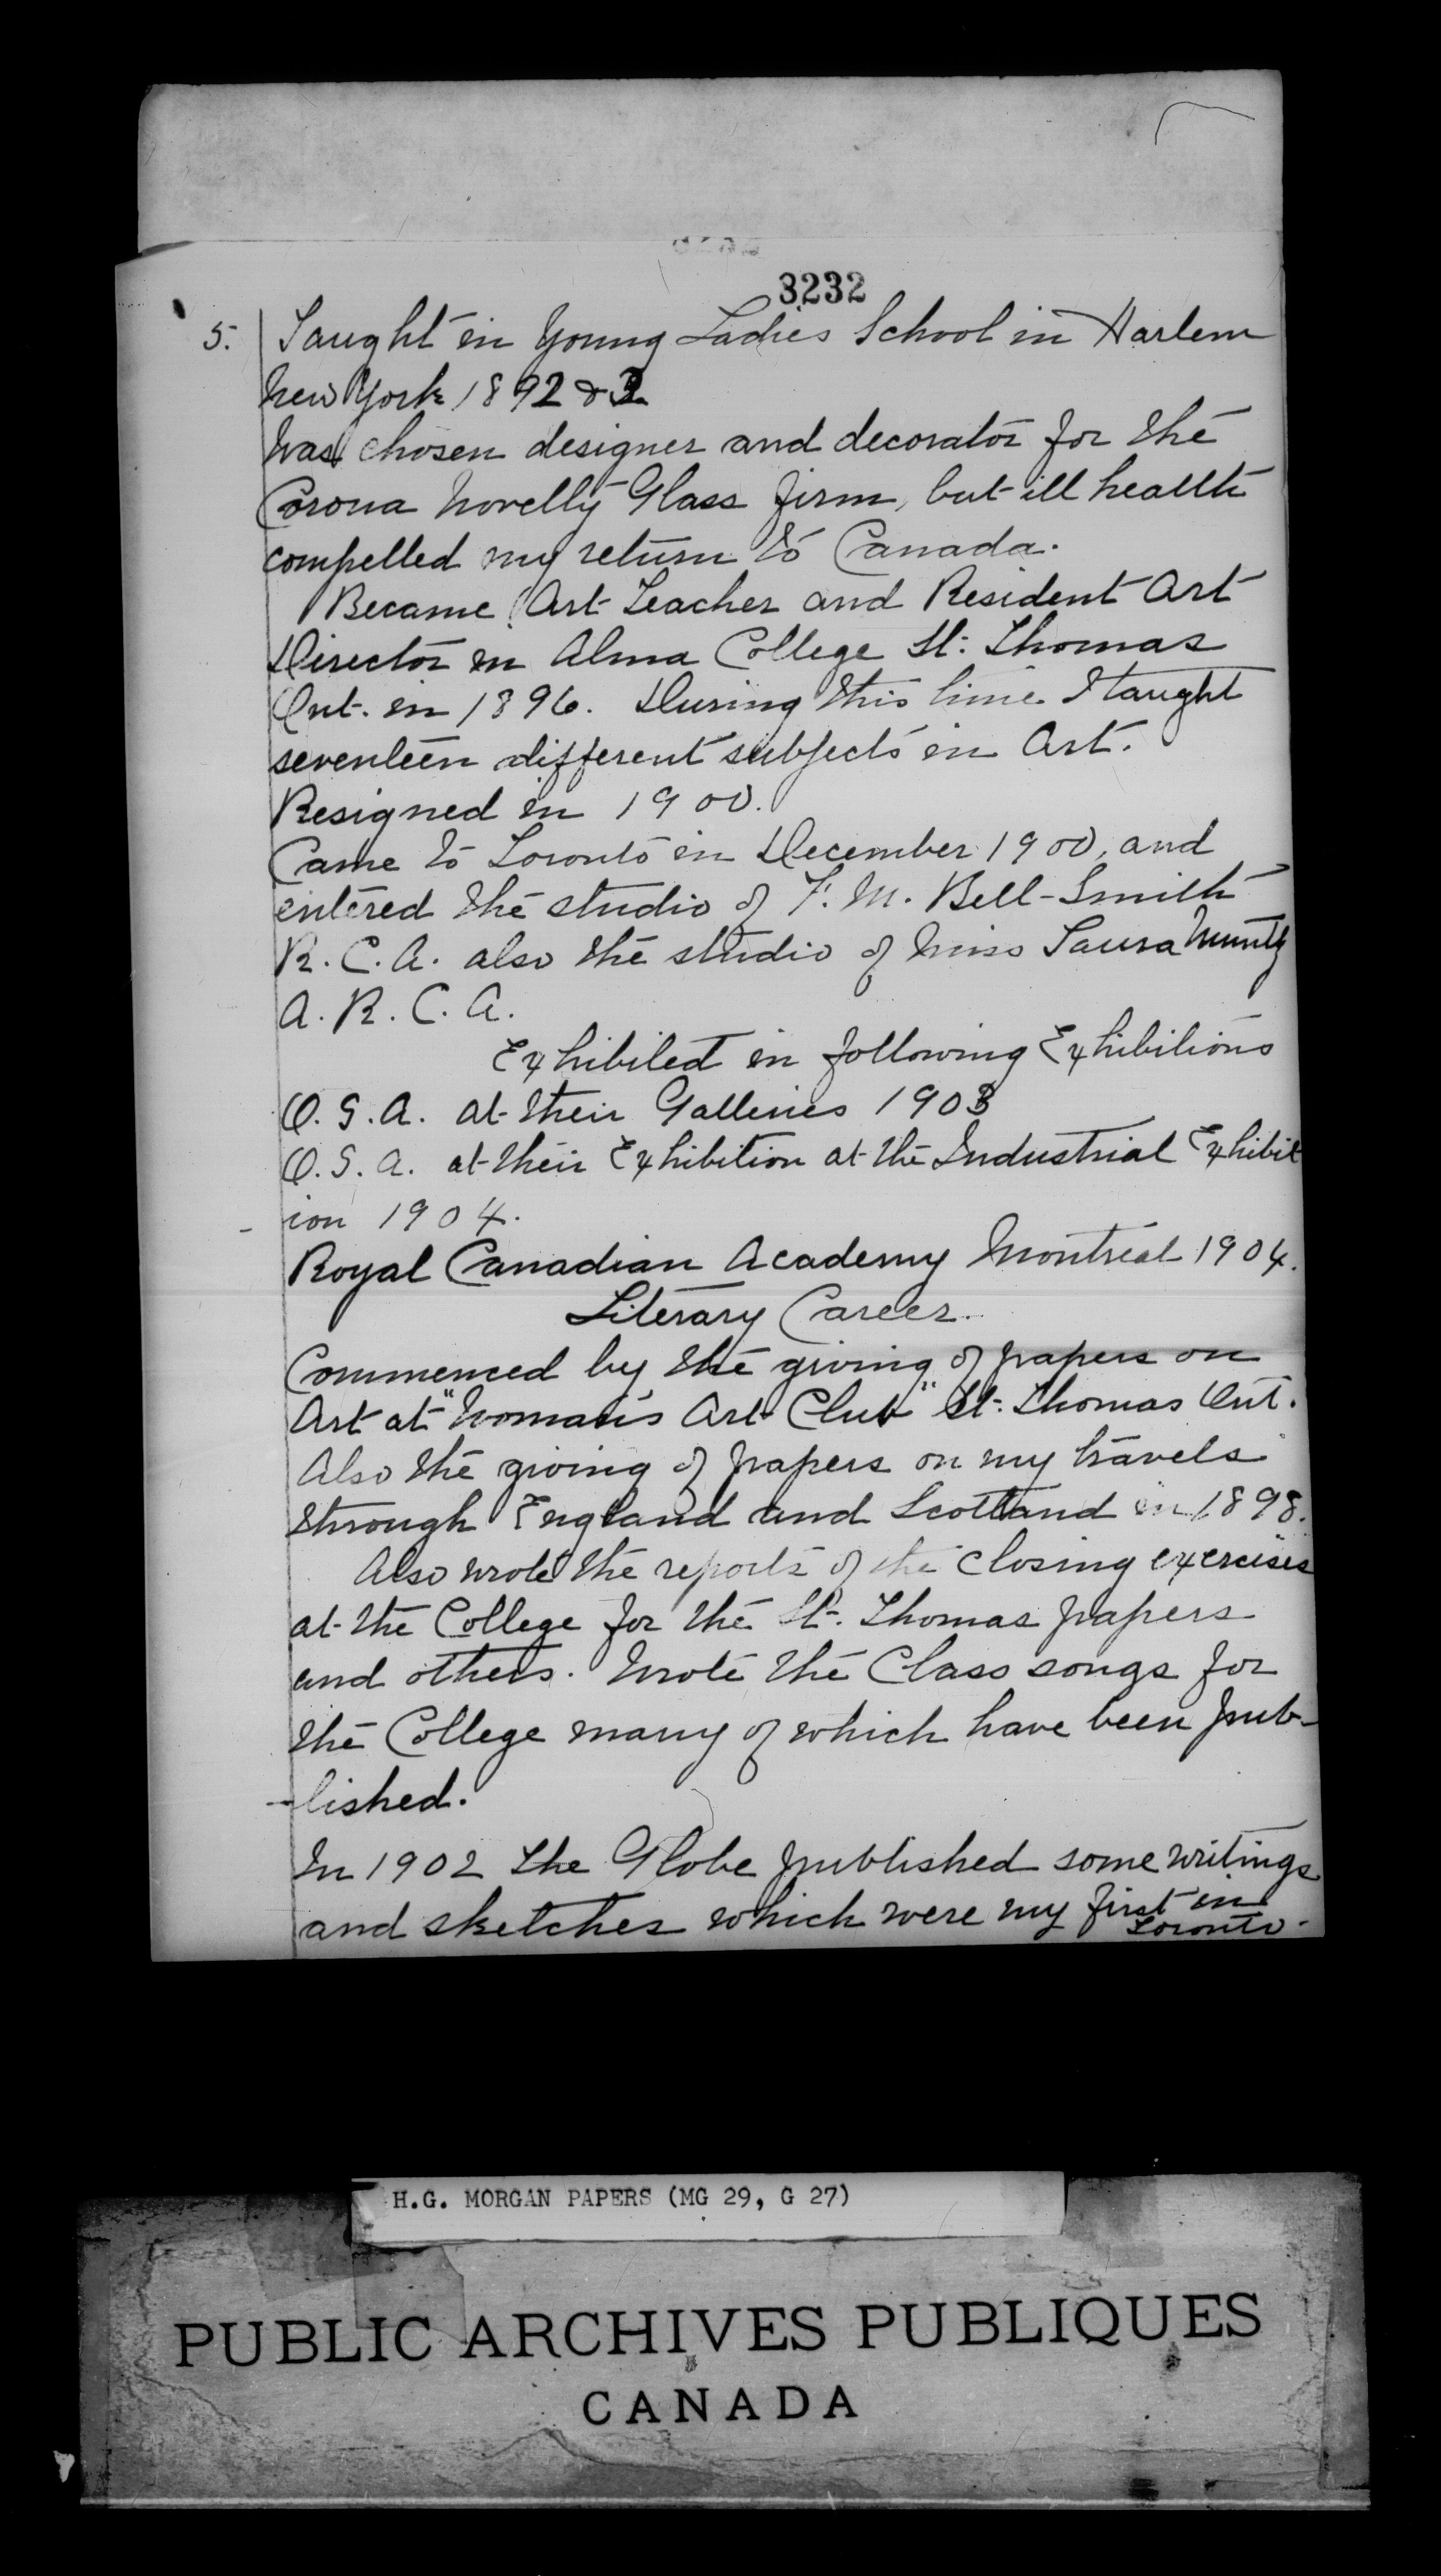 3232
5. Taught in Young Ladies School in Harlem
New York 1892 & 3
Was chosen designer and decorator for the
Corona Novelty Glass firm, but ill health
compelled my return to Canada.
Became Art Teacher and Resident Art
Director in Alma College St. Thomas
Ont. in 1896. During this time I taught
seventeen different subjects in Art.
Resigned in 1900.
Came to Toronto in December 1900, and
entered the studio of F. M. Bell-Smith
R. C. A. also the studio of Miss Laura Muntz
A. R. C. A.
Exhibited in following Exhibitions
O. S. A. at their Galleries 1903
O. S. A. at their Exhibition at the Industrial Exhibit
ion 1904.
Royal Canadian Academy Montreal 1904.
Literary Career.
Commenced by the giving of papers on
Art at "Woman's Art Club" St. Thomas Ont.
Also the giving of papers on my travels
through England and Scotland in 1898.
Also wrote the reports of the closing exercises
at the College for the St. Thomas papers
and others. Wrote the Class songs for
the College many of which have been pub-
-lished.
In 1902 the Globe published some writings
and sketches which were my first in
Toronto.
H.G. MORGAN PAPERS (MG 29, G 27)
PUBLIC ARCHIVES PUBLIQUES
CANADA